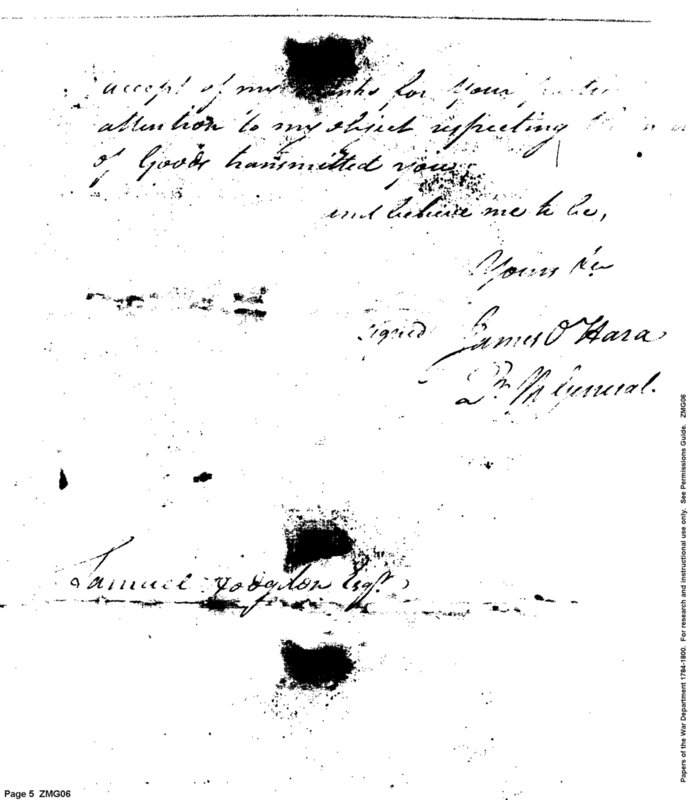 accept of my thanks for your
attention to my object respecting
of Goods transmitted you
and believe me to be,
Yours &c
signed James O'Hara
Qr. M General.
Samuel Hodgdon Esqr.
Page 5 ZMG06
Papers of the War Department 1784-1800. For research and instructional use only. See Permissions Guide. ZMG06